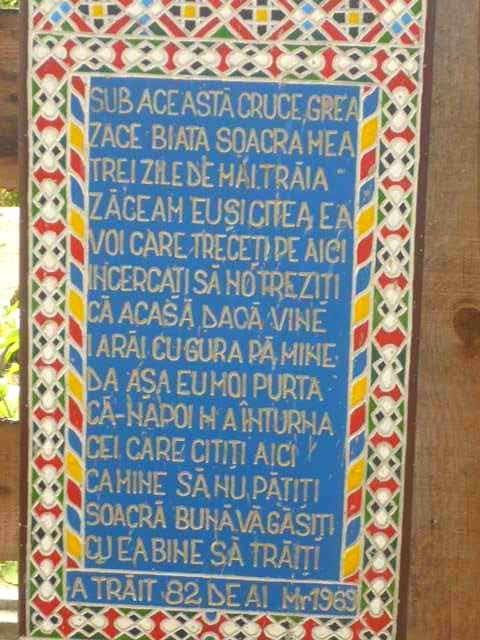 SUB ACEASTĂ CRUCE GREA
ZACE BIATA SOACRA MEA
TREI ZILE DE MAI TRĂIA
ZĂCEAM EU SI CITEA EA
VOI CARE TRECEȚI PE AICI
INCERCAȚI SĂ NO TREZIȚI
CĂ ACASĂ DACĂ VINE
IARĂI CU GURA PĂ MINE
DA AȘA EU MOI PURTA
CĂ-NAPOI N A ÎNTURNA
CEI CARE CITIȚI AICI
CA MINE SĂ NU PĂȚIȚI
SOACRĂ BUNĂ VĂ GĂSIȚI
CU EA BINE SĂ TRĂIȚI
A TRĂIT 82 DE AI Mr 1969